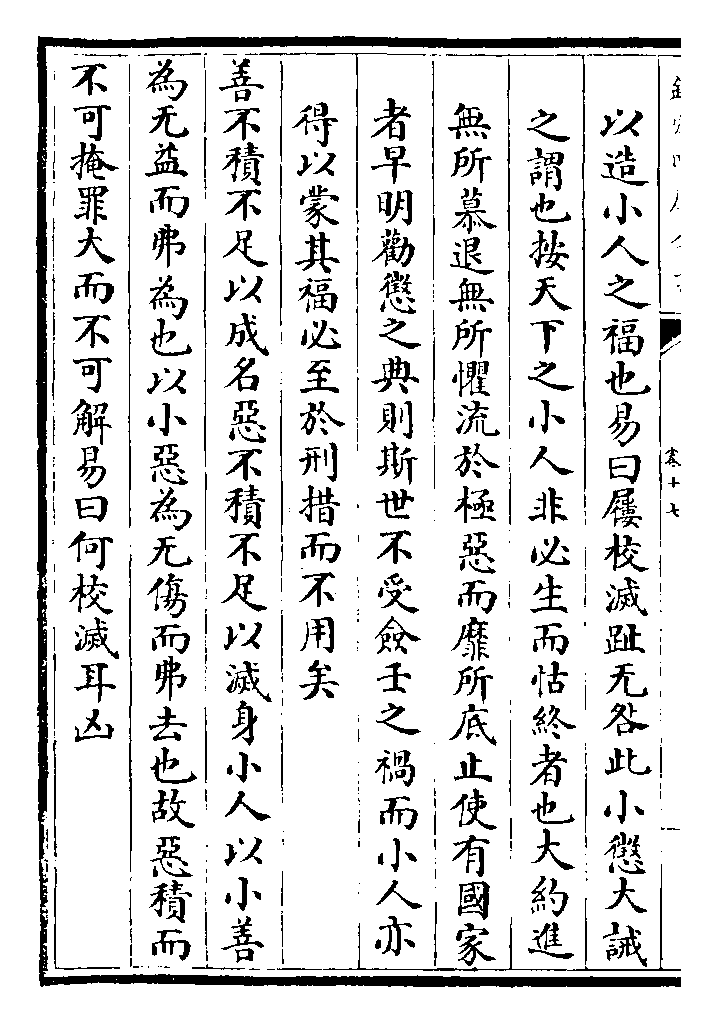 以造小人之福也易曰屨校滅趾无咎此小懲大誡
之謂也按天下之小人非必生而怙終者也大約進
無所慕退無所懼流於極惡而靡所底止使有國家
者早明勸懲之典則斯世不受僉壬之禍而小人亦
得以蒙其福必至於刑措而不用矣
善不積不足以成名惡不積不足以滅身小人以小善
為无益而弗為也以小惡為无傷而弗去也故惡積而
不可掩罪大而不可解易曰何校滅耳凶
卷十七